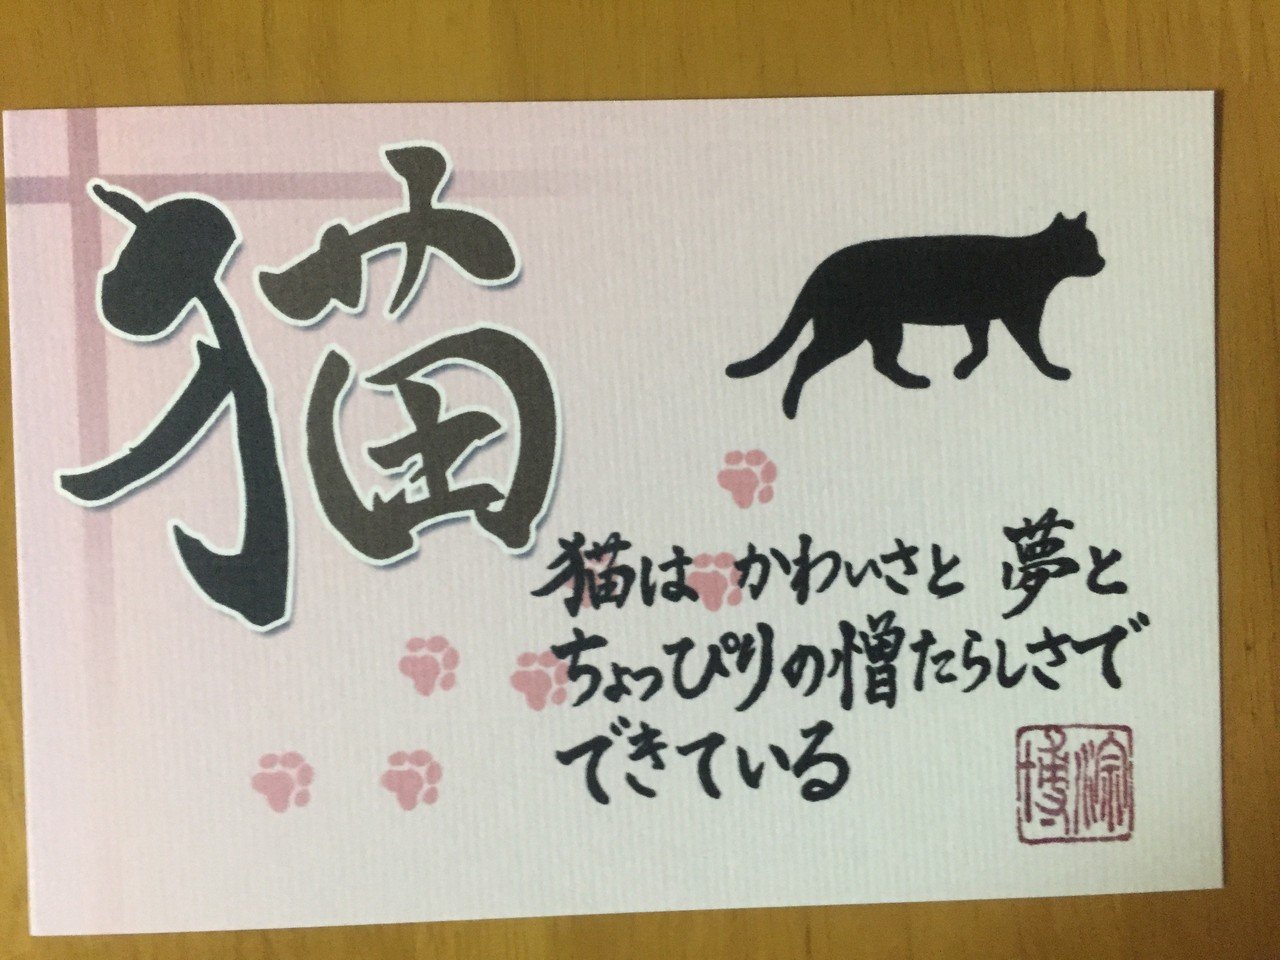 猫
猫はかわいさと 夢と
ちょっぴりの憎たらしさで
できている